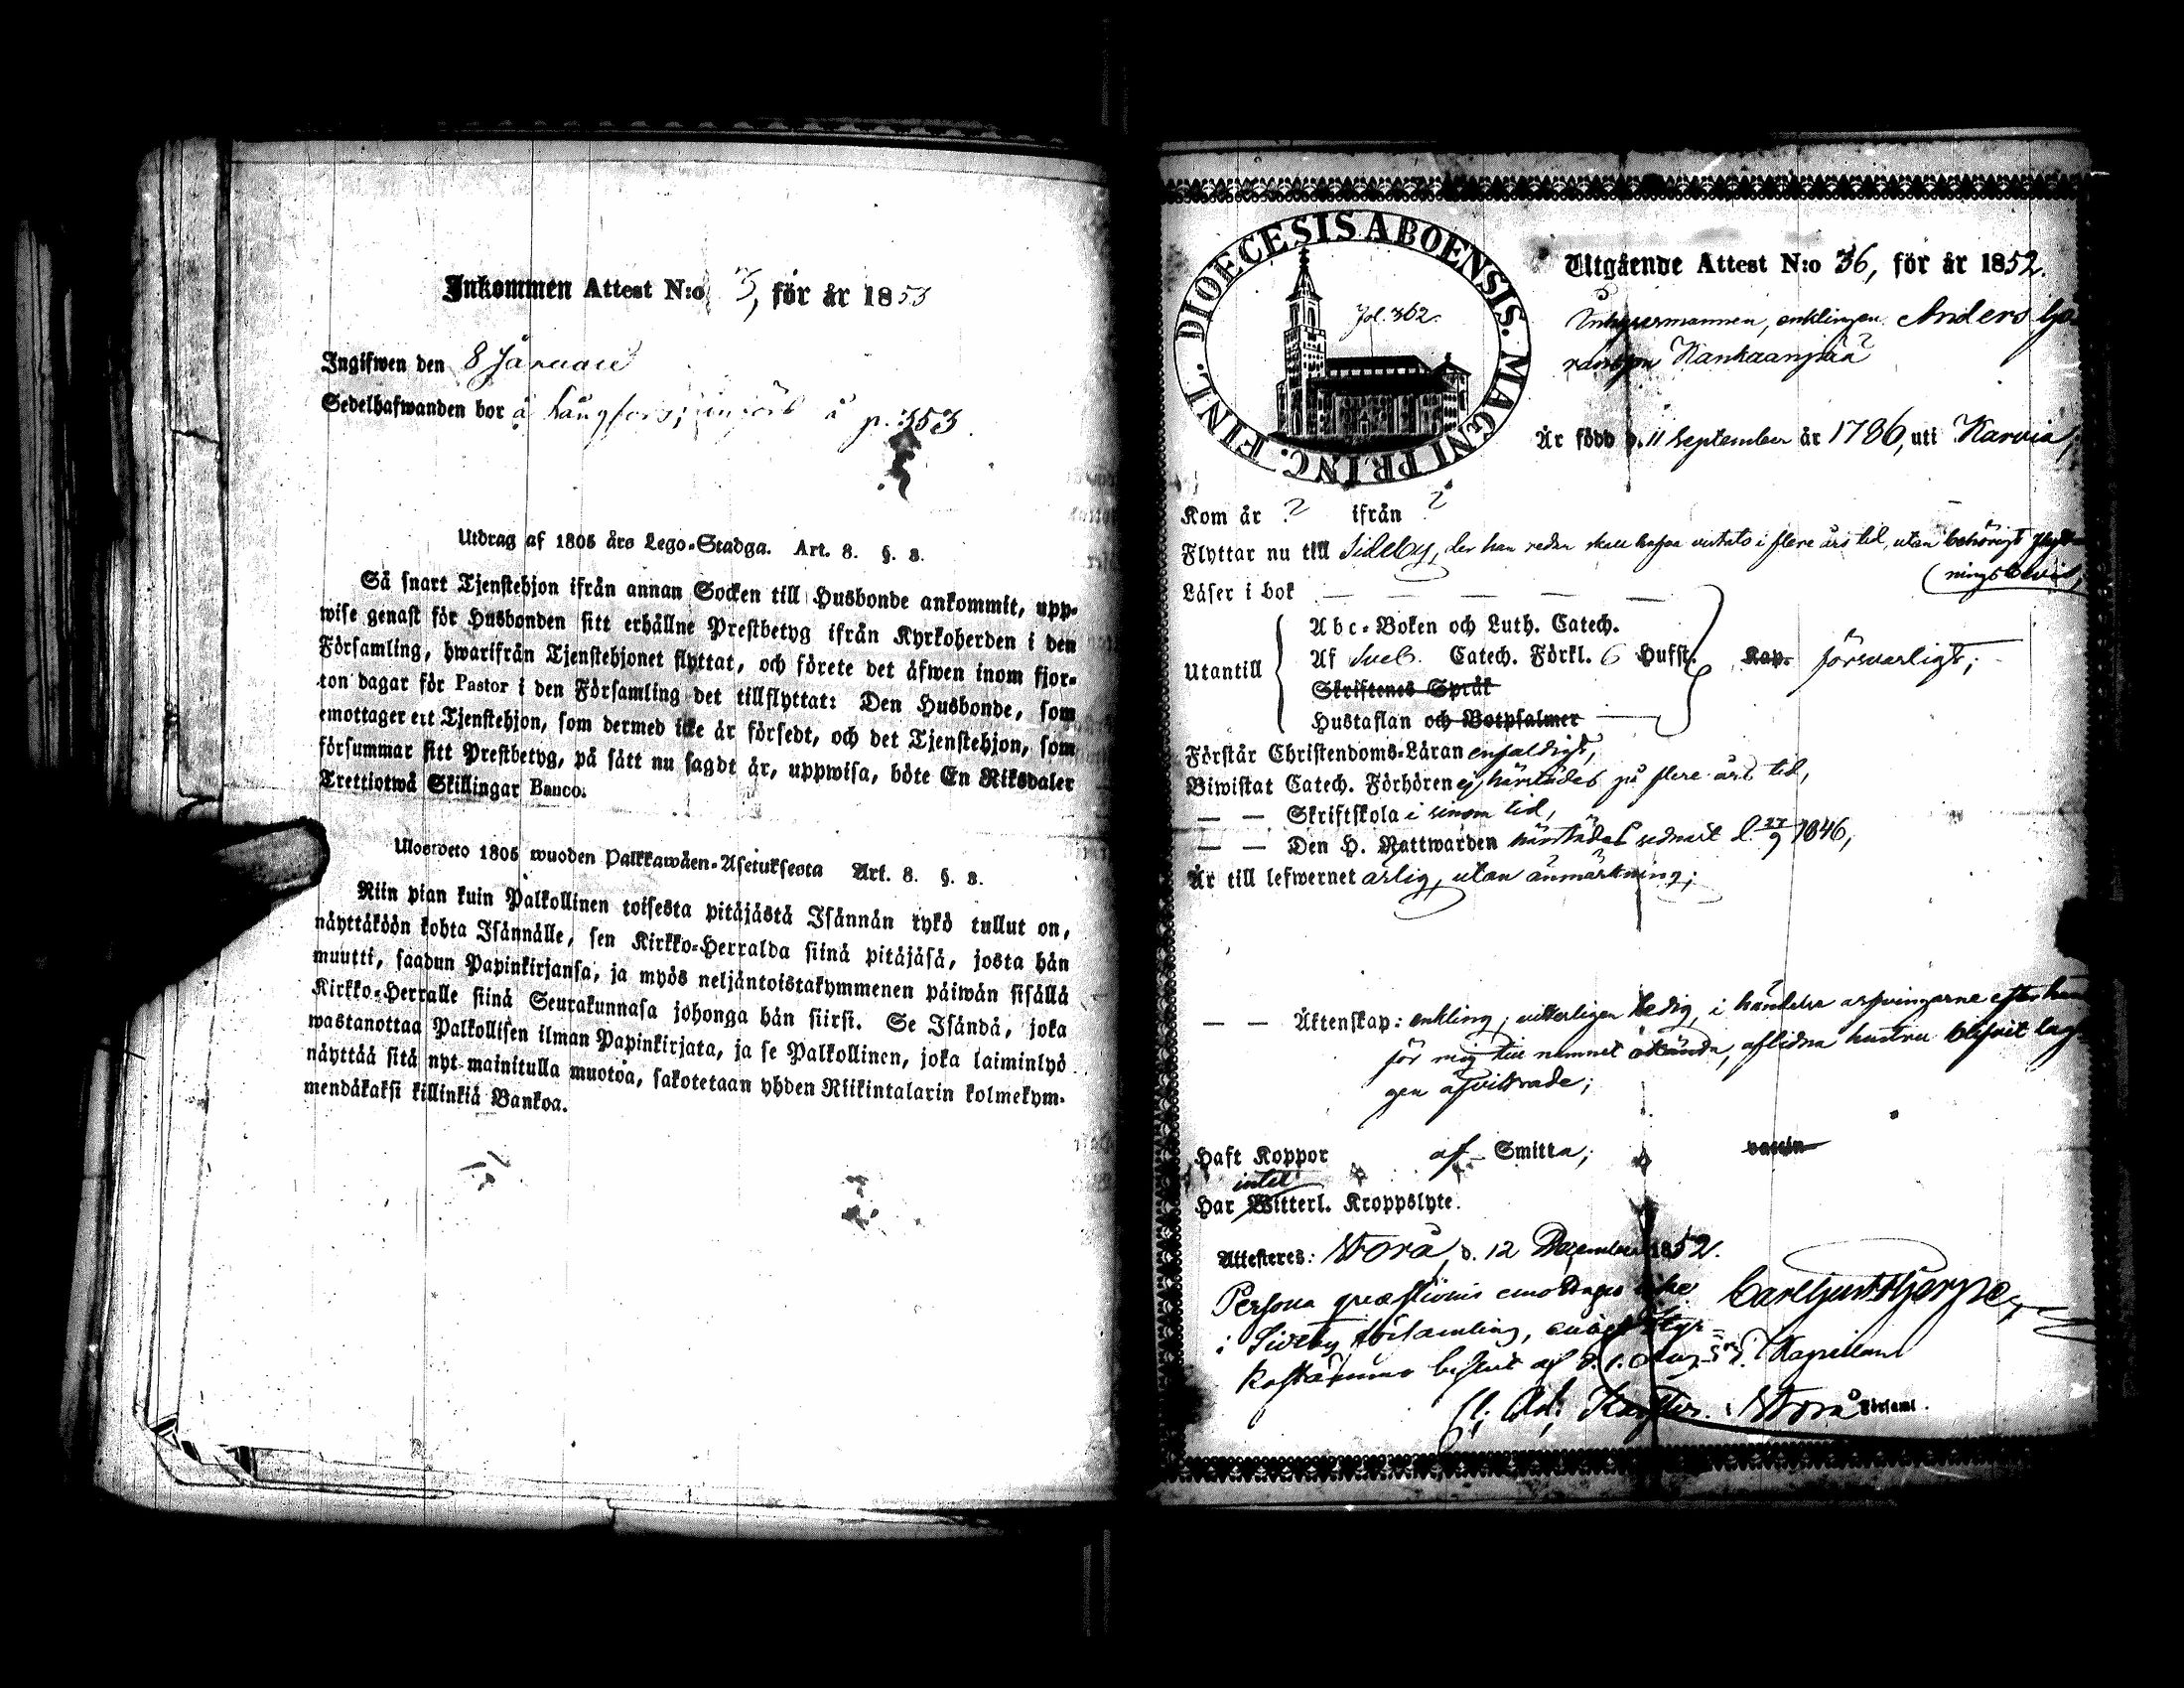 Inkommen Attest N:o 3, för år 1853
Ingifwen den 8 Januari
Sedelhafwanden bor å Långfors; införd å p. 353.
Utdrag af 1805 års Lego-Stadga. Art. 8. §. 8.
Så snart Tjenstehjon ifrån annan Socken till Husbonde ankommit, upp-
wise genast för Husbonden sitt erhållne Prestbetyg ifrån Kyrkoherden i den
Församling, hwarifrån Tjenstehjonet flyttat, och förete det äfwen inom fjor-
ton dagar för Pastor i den Församling det tillflyttat: Den Husbonde, som
emottager ett Tjenstehjon, som dermed icke är försedt, och det Tjenstehjon, som
försummar sitt Prestbetyg, på sätt nu sagdt är, uppwisa, böte En Riksdaler
Trettiotwå Skillingar Banco.
Ulosweto 1805 wuoden Palkkawäen-Asetuksesta Art. 8. §. 8.
Niin pian kuin Palkollinen toisesta pitäjästä Isännän tykö tullut on,
näyttäköön kohta Isännälle, sen Kirkko-Herralda siinä pitäjäsä, josta hän
muutti, saadun Papinkirjansa, ja myös neljäntoistakymmenen päiwän sisällä
Kirkko-Herralle siinä Seurakunnasa johonga hän siirsi. Se Isändä, joka
wastanottaa Palkollisen ilman Papinkirjata, ja se Palkollinen, joka laiminlyö
näyttää sitä nyt mainitulla muotoa, sakotetaan yhden Riikintalarin kolmekym-
mendäkaksi killinkiä Bankoa.
DIOECESIS ABOENSIS. MAGNI PRINC. FINL.
Fol. 362.
Utgående Attest N:o 36, för år 1852.
Inhysesmannen, enklingen Anders Gö-
ransson Kankaanpää
Är född d. 11 September år 1786, uti Karvia;
Kom år ? ifrån ?
Flyttar nu till Sideby, der han redan skall hafva vistats i flere års tid, utan behörigt flytt-
ningsbevis,
Läser i bok — — — — —
Utantill
Abc-Boken och Luth. Catech.
Af Sveb. Catech. Förkl. 6 Hufst. Kap. försvarligt;
Skriftenes Språk
Hustaflan och Botpsalmer
Förstår Christendoms-Läran enfaldigt;
Biwistat Catech. Förhören ej härstädes på flere års tid,
— — Skriftskola i sinom tid,
— — Den H. Nattwarden härstädes sednast d. 27/9 1846,
Är till lefwernet ärlig, utan anmärkning;
— — Äktenskap: enkling, vitterligen ledig, i händelse arfvingarne efter hans
för mig till namnet okända, aflidna hustru blifvit lag-
gen afvittrade;
Haft Koppor af Smitta; vaccin
intet
Har Witterl. Kroppslyte.
Attesteres: Storå, d. 12 December 1852.
Persona quæstionis emottages icke
i Sideby församling,
Kapellan
Storå Församl.